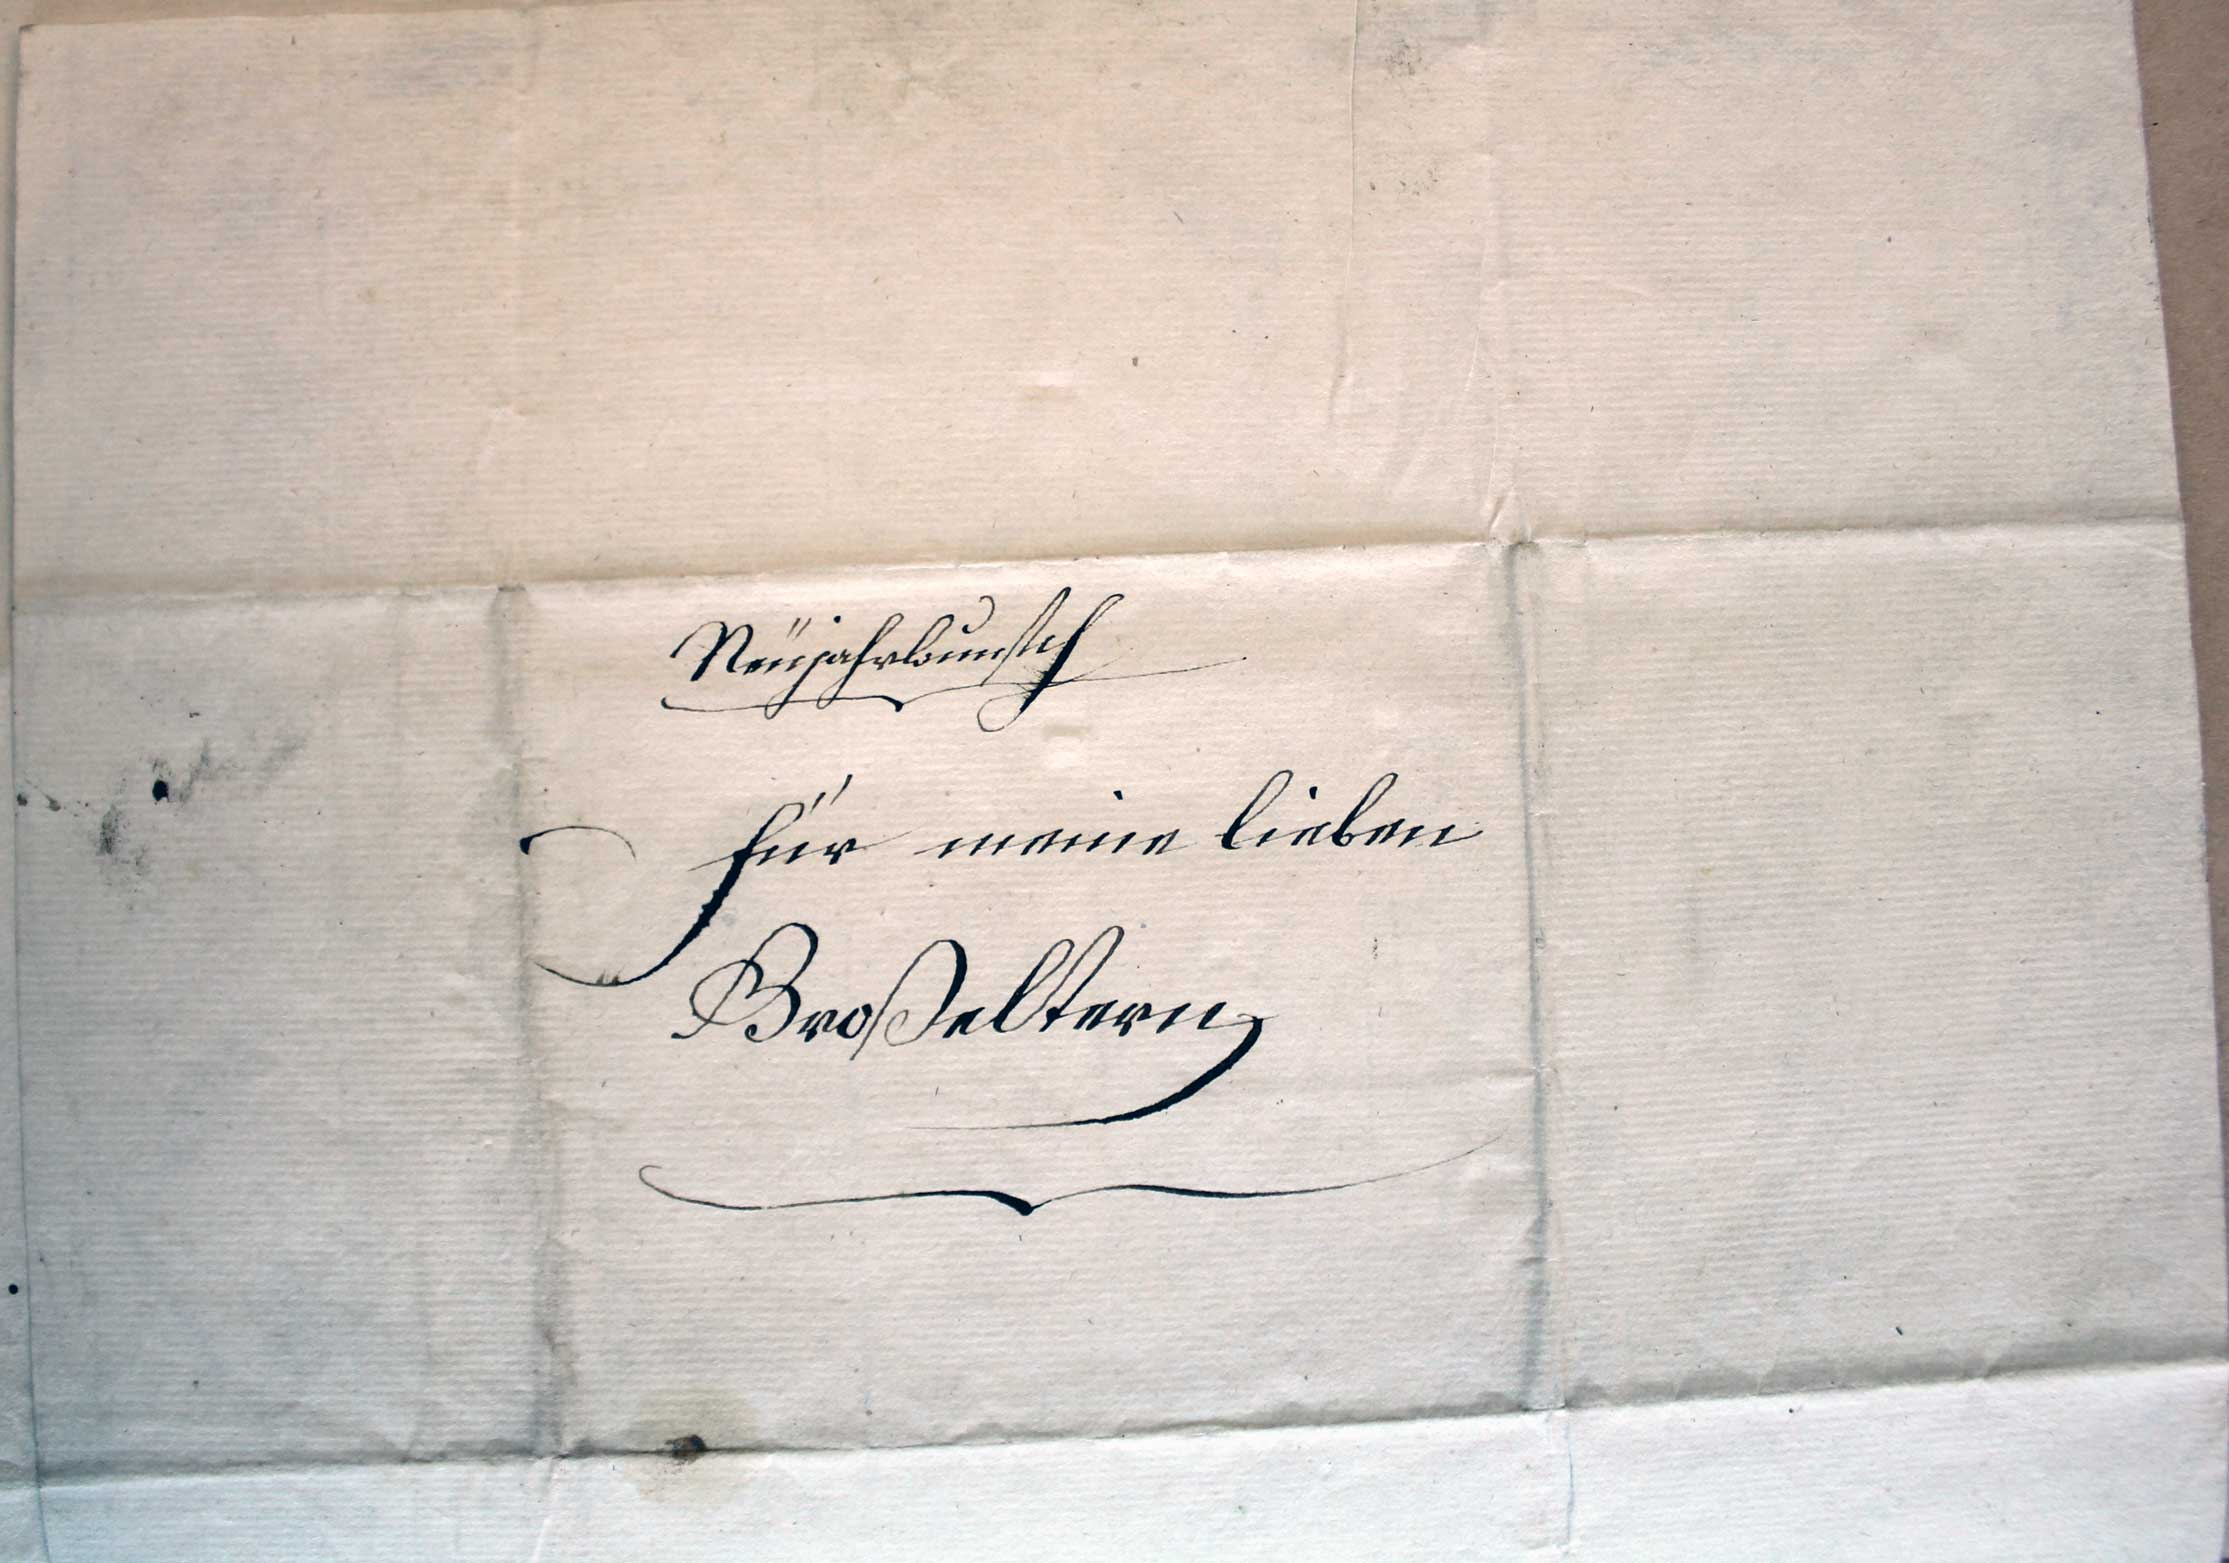 Neüjahrwunsch
für meine lieben
Großeltern